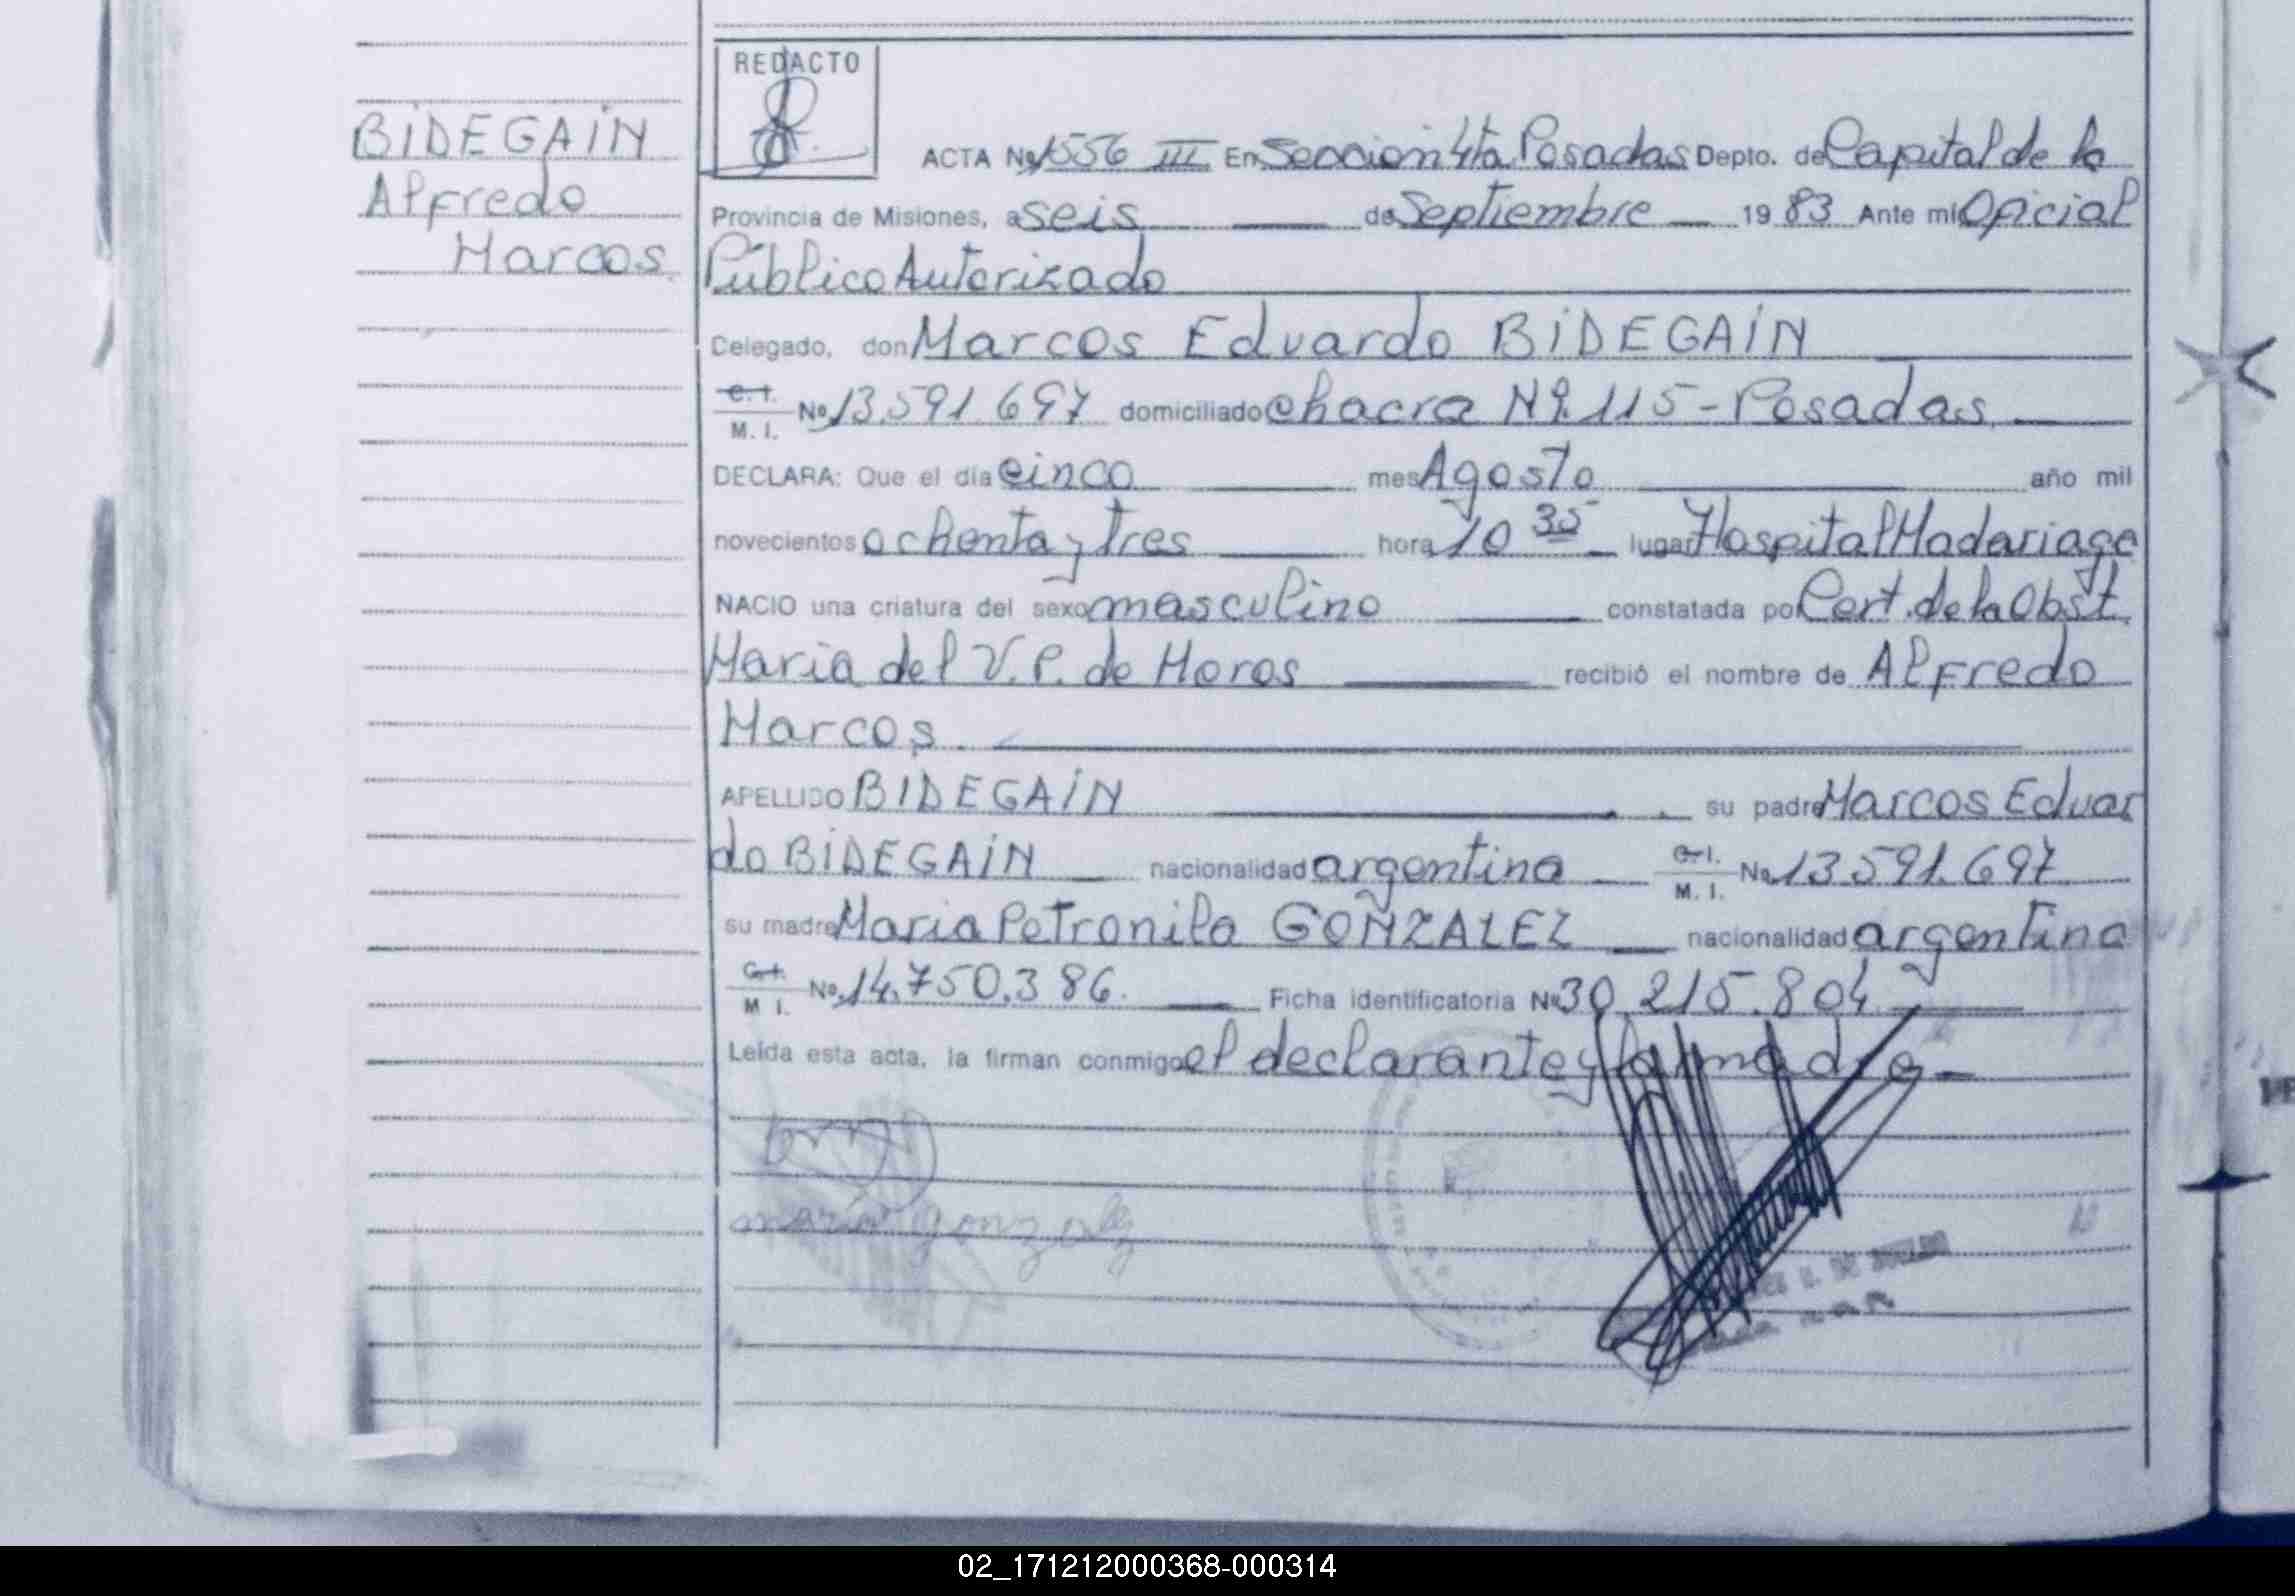 REDACTO
BIDEGAIN
Alfredo
Marcos
ACTA No 1556 III En Seccion 4ta Posadas Depto. de Capital de la
Provincia de Misiones, a seis de Septiembre 1983 Ante mi Oficial
Público Autorizado
Delegado, don Marcos Eduardo BIDEGAIN
C. I.
M. I. No 13.591.697 domiciliado chacra Nº 115 - Posadas
DECLARA: Que el día cinco mes Agosto año mil
novecientos ochenta y tres hora 10 35 lugar Hospital Madariaga
NACIO una criatura del sexo masculino constatada por Cert. de la Obst.
Maria del V. P. de Moros recibió el nombre de Alfredo
Marcos.
APELLIDO BIDEGAIN su padre Marcos Eduar
do BIDEGAIN nacionalidad argentina C. I.
M. I. No 13.591.697
su madre Maria Petronila GONZALEZ nacionalidad argentina
C. I.
M. I. No 14.750.386. Ficha identificatoria No 30.215.804
Leída esta acta, la firman conmigo el declarante y la madre
maria gonzalez
02_171212000368-000314